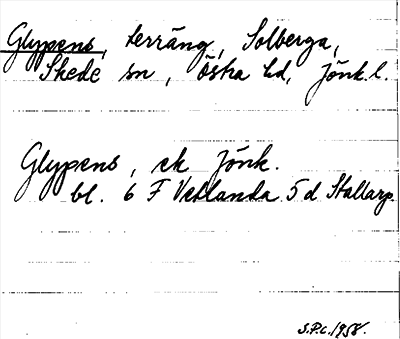 Glypens, terräng, Solberga,
Skede sn, Östra hd, Jönk.l.
Glypens, ek Jönk.
bl. 6 F Vetlanda 5 d Stallarp.
S.P.c. 1958.